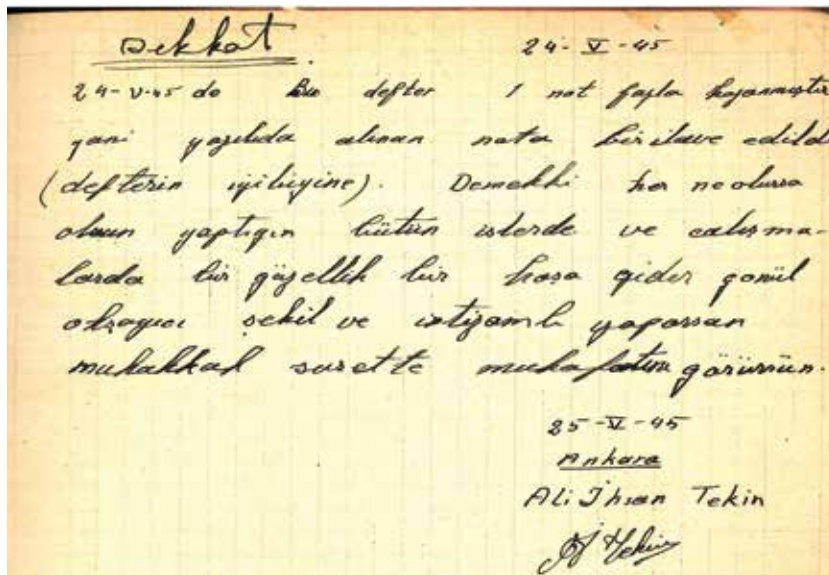 Dikkat 24-V-45
24-V-45 de Bu defter 1 not fazla kazanmıştır
yani yazılıda alınan nota bir ilave edildi
(defterin iyiliğine). Demekki her ne olursa
olsun yaptıgın bütün işlerde ve calışma-
larda bir güzellik bir hoşa gider gönül
okşayıcı şekil ve intizamlı yaparsan
muhakkak surette mukafatını görürsün.
25-V-45
Ankara
Ali İhsan Tekin